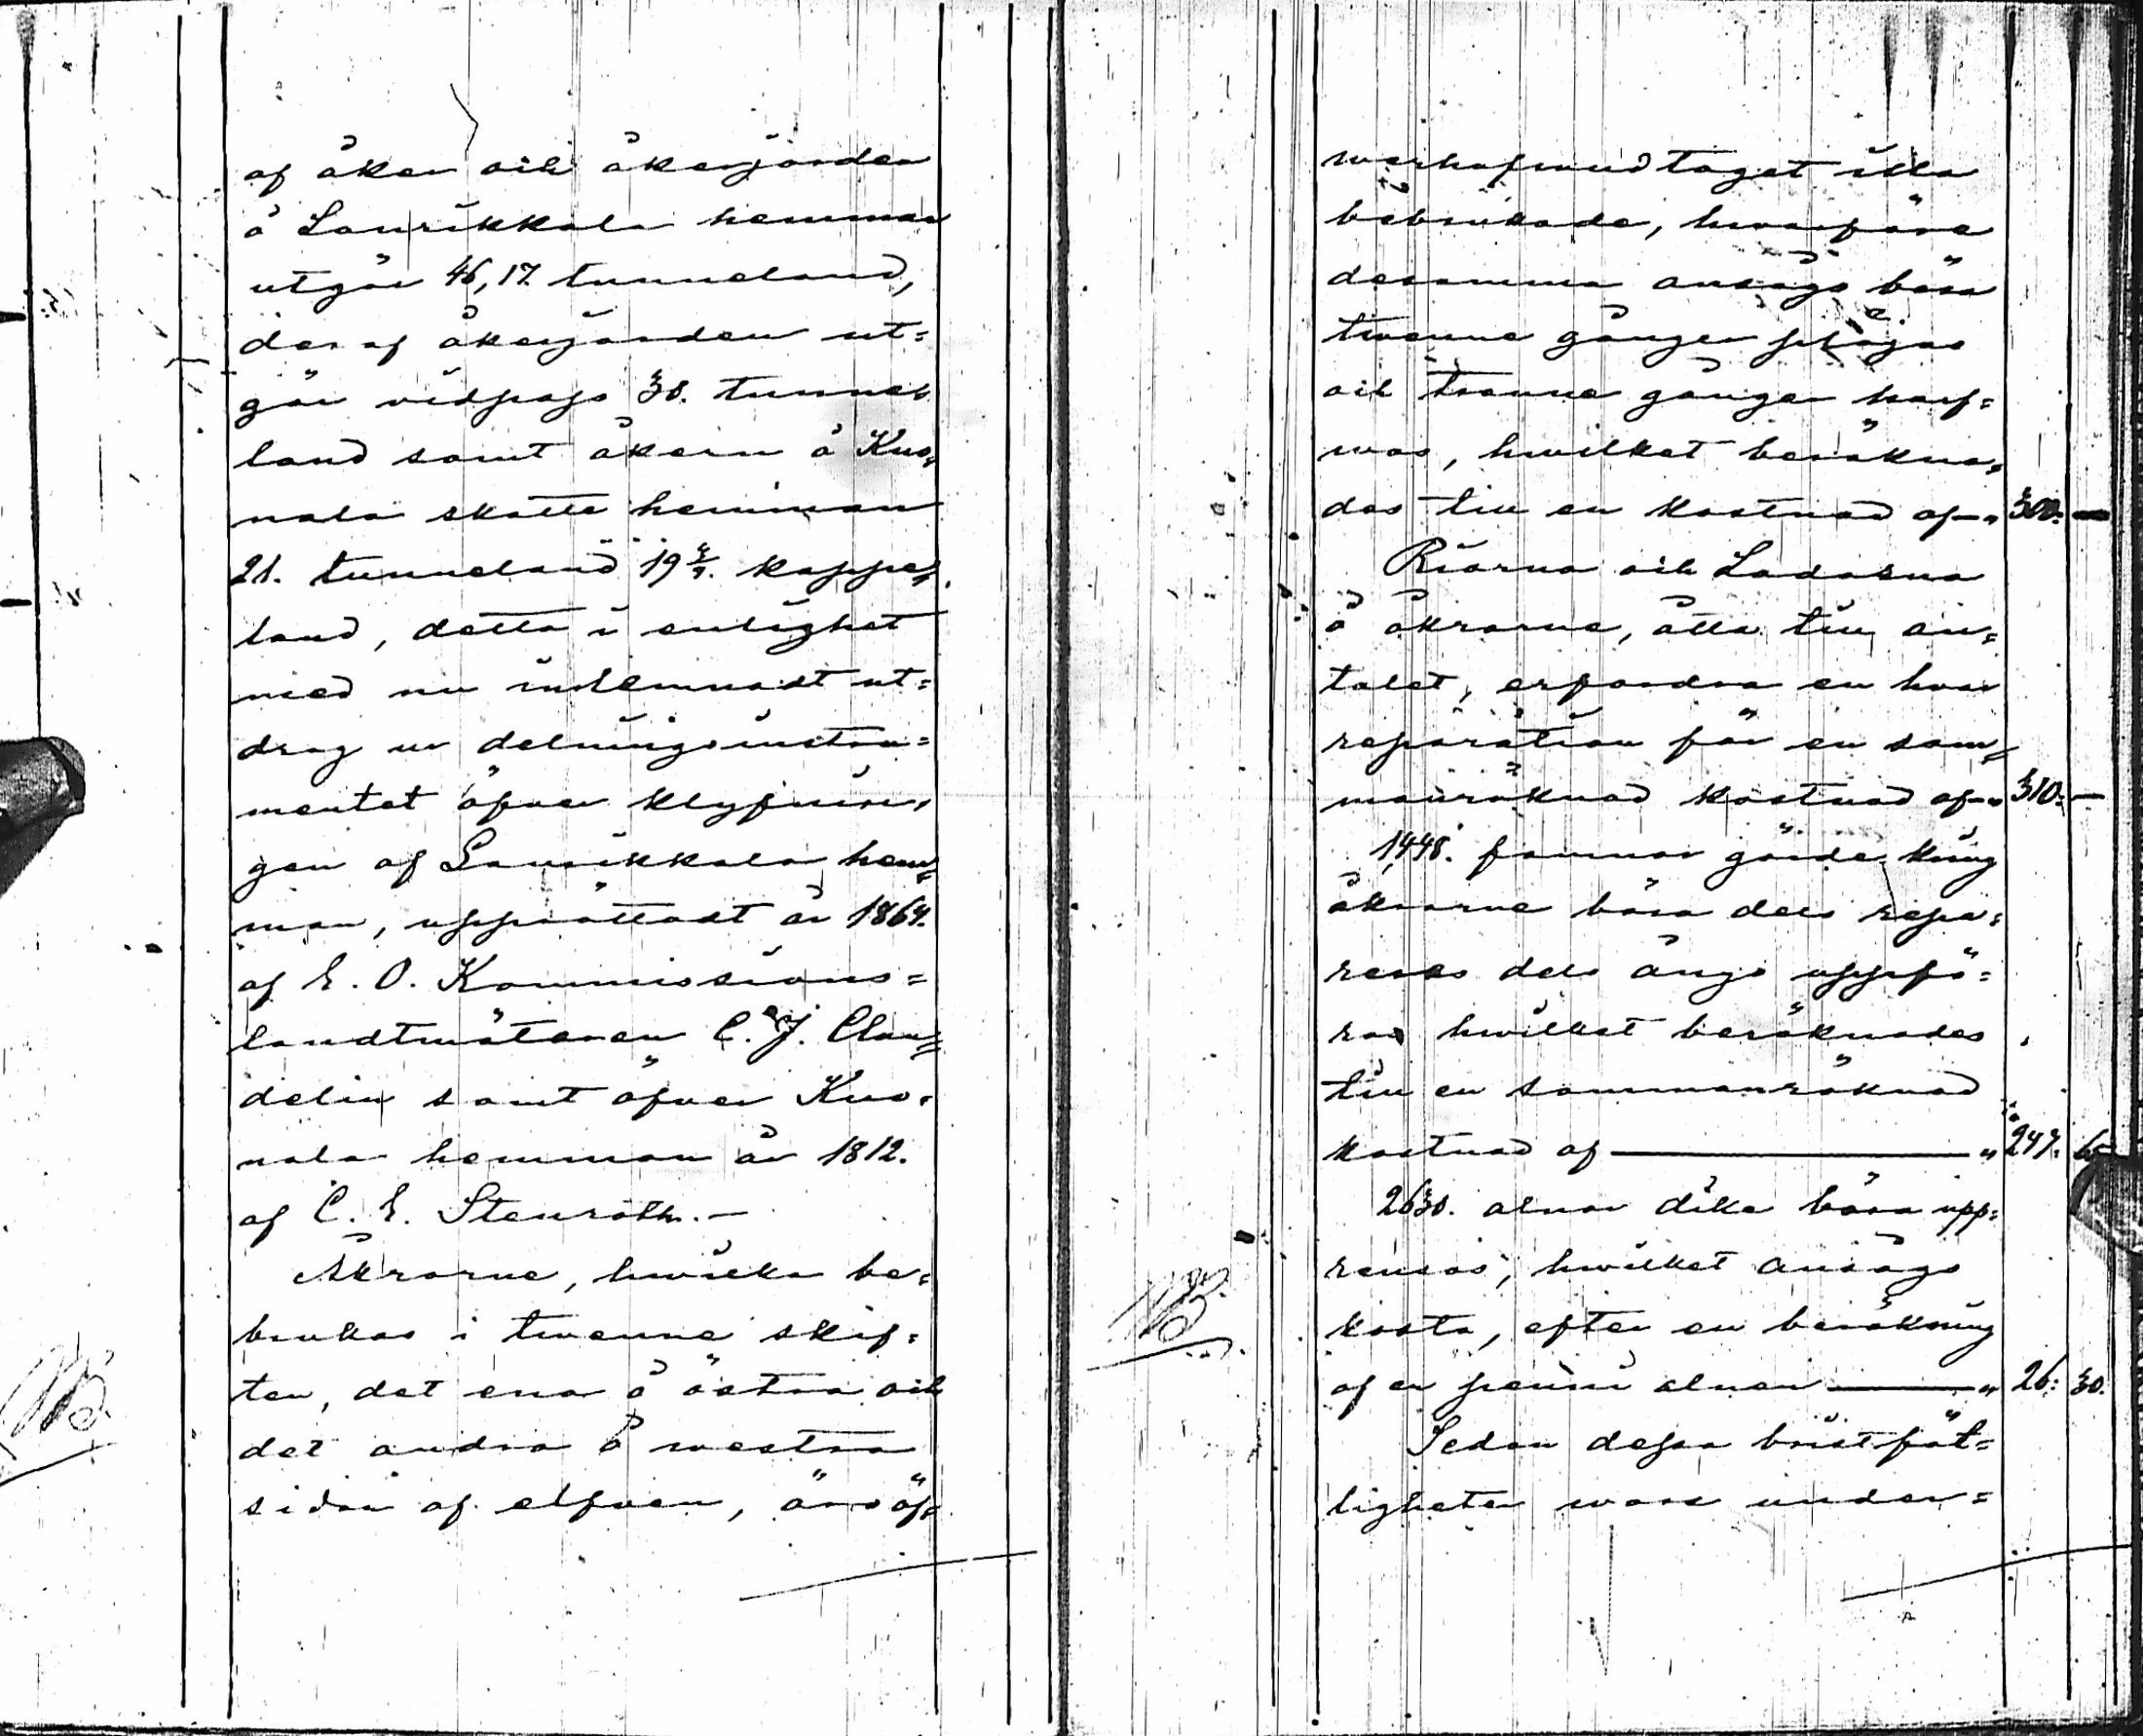 af åker och åkerjorden
å Laurikkala hemman
utgör 46,17 tunneland,
der af åkerjorden ut=
gör vidpass 30. tunne=
land samt åkern å Kuo=
nala skatte hemman
21. tunneland 19 4/7. kappe=
land, detta i enlighet
med nu inlemnadt ut=
drag ur delningsinstru=
mentet öfver klyfnin=
gen af Laurikkala hem=
man, upprättadt år 1864.
af E. O. Kommissions=
landtmätaren C. J. Clau=
delin samt öfver Kuo=
nala hemman år 1812.
af C. E. Stenroth.—
Åkrarne, hwilka be=
brukas i twenne skif=
ten, det ena å östra och
det andra å westra
sidan af elfven, äro öf=
NB.
werhufwudtaget illa
bebrukade, hwarföre
desamma ansågs böra
twenne gånger plöjas
och trenne gånger harf=
was, hwilket beräkna=
des till en kostnad af—" 300: —
Riorna och Ladorna
å åkrarne, åtta till an=
talet, erfordra en hvar
reparation för en sam=
manräknad kostnad af—" 310: —
1,448. famnar gärde kring
åkrarne böra dels repa=
reras dels ånyo uppfö=
ras hwilket beräknades
till en sammanräknad
kostnad af — " 247:
2630. alnar dike böra upp=
rensas, hwilket ansågs
kosta, efter en beräkning
af en penni alnen — " 26: 30.
Sedan dessa bristfäl=
ligheter wore under=
NB.